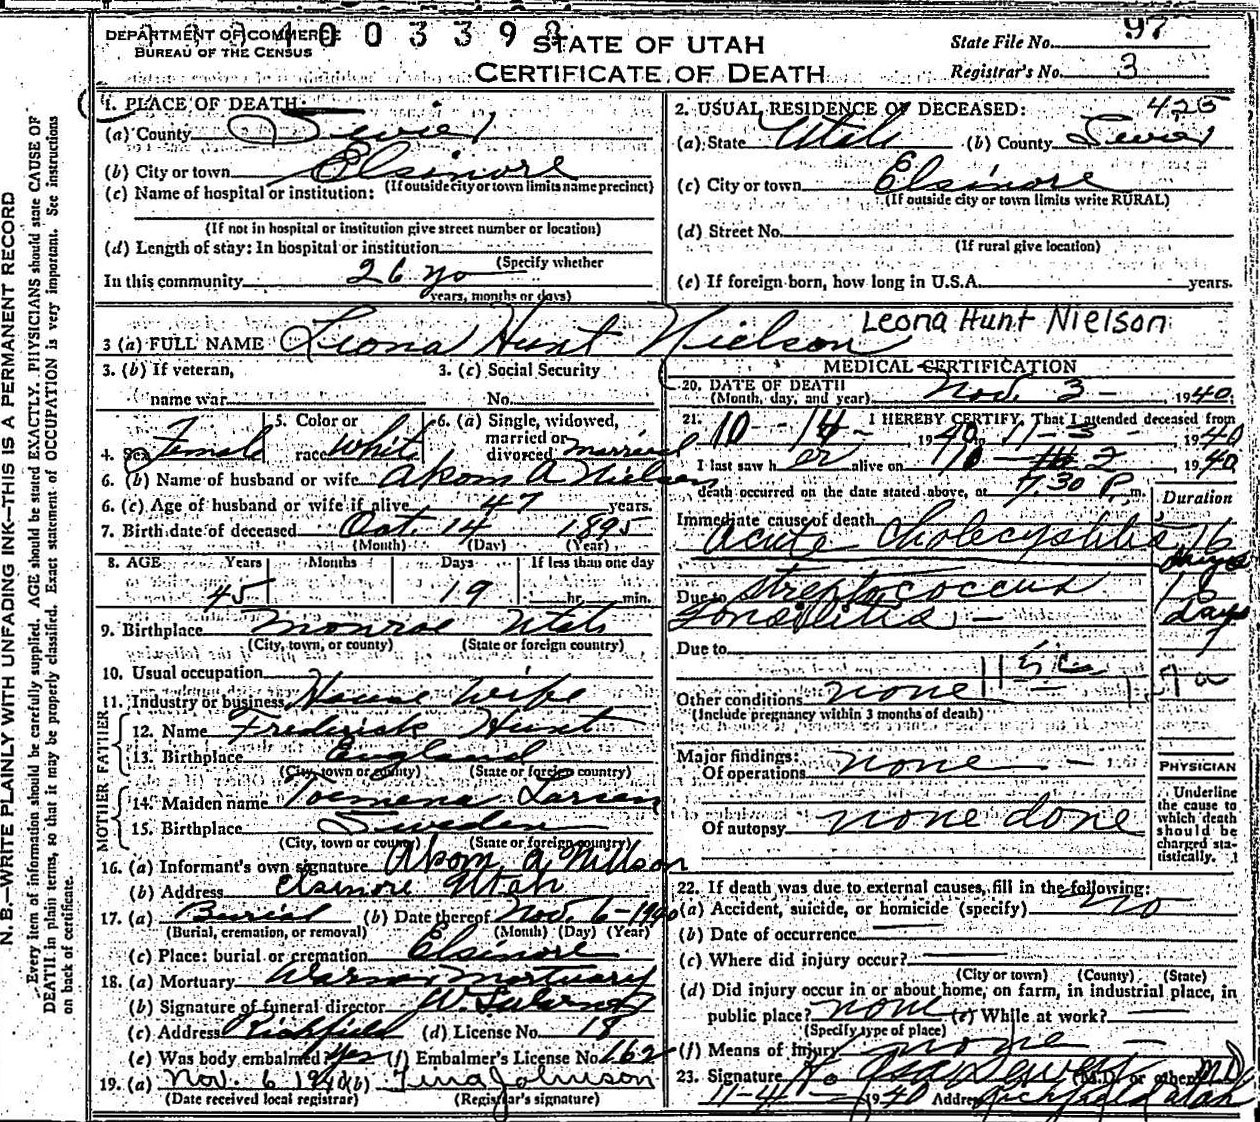 DEPARTMENT OF COMMERCE
BUREAU OF THE CENSUS
0 0 3 3 9
STATE OF UTAH
CERTIFICATE OF DEATH
State File No. 97
Registrar's No. 3
N. B.—WRITE PLAINLY WITH UNFADING INK—THIS IS A PERMANENT RECORD
Every item of information should be carefully supplied. AGE should be stated EXACTLY. PHYSICIANS should state CAUSE OF
DEATH in plain terms, so that it may be properly classified. Exact statement of OCCUPATION is very important. See instructions
on back of certificate.
1. PLACE OF DEATH:
(a) County Sevier
(b) City or town Elsinore
(If outside city or town limits name precinct)
(c) Name of hospital or institution:
(If not in hospital or institution give street number or location)
(d) Length of stay: In hospital or institution
(Specify whether
In this community 26 yrs
years, months or days)
2. USUAL RESIDENCE OF DECEASED: 425
(a) State Utah (b) County Sevier
(c) City or town Elsinore
(If outside city or town limits write RURAL)
(d) Street No.
(If rural give location)
(e) If foreign born, how long in U.S.A. years.
3 (a) FULL NAME Leona Hunt Nielson
Leona Hunt Nielson
3. (b) If veteran,
name war
3. (c) Social Security
No.
4. Sex Female
5. Color or
race White
6. (a) Single, widowed,
married or
divorced married
6. (b) Name of husband or wife Akom A Nielsen
6. (c) Age of husband or wife if alive 47 years.
7. Birth date of deceased Oct. 14 1895
(Month) (Day) (Year)
8. AGE Years Months Days If less than one day
45 19 hr. min.
9. Birthplace Monroe Utah
(City, town, or county) (State or foreign country)
10. Usual occupation
11. Industry or business House wife
FATHER
12. Name Frederick Hunt
13. Birthplace England
(City, town or county) (State or foreign country)
MOTHER
14. Maiden name Larsen
15. Birthplace Sweden
(City, town or county) (State or foreign country)
16. (a) Informant's own signature Akom A Nillson
(b) Address Elsinore Utah
17. (a) Burial (b) Date thereof Nov. 6-1940
(Burial, cremation, or removal) (Month) (Day) (Year)
(c) Place: burial or cremation Elsinore
18. (a) Mortuary Mortuary
(b) Signature of funeral director
(c) Address Richfield (d) License No. 18
(e) Was body embalmed? Yes (f) Embalmer's License No. 162
19. (a) Nov. 6 1940 (b) Tina Johnson
(Date received local registrar) (Registrar's signature)
MEDICAL CERTIFICATION
20. DATE OF DEATH
(Month, day, and year) Nov. 3 - 1940.
21. I HEREBY CERTIFY, That I attended deceased from
10 - 14 - 1940 to 11 - 3 - 1940
I last saw her alive on 2 1940
death occurred on the date stated above, at 7:30 P. m.
Duration
Immediate cause of death
Acute Cholecystitis 16 days
Due to streptococcus
tonsilitis - days
Due to
Other conditions none
(Include pregnancy within 3 months of death)
Major findings:
Of operations none -
Of autopsy none done
PHYSICIAN
Underline
the cause to
which death
should be
charged sta-
tistically.
22. If death was due to external causes, fill in the following:
(a) Accident, suicide, or homicide (specify) no
(b) Date of occurrence
(c) Where did injury occur?
(City or town) (County) (State)
(d) Did injury occur in or about home, on farm, in industrial place, in
public place? none (e) While at work?
(Specify type of place)
(f) Means of Injury none
23. Signature (M.D. or other) MD
11-4- 1940 Address Richfield Utah